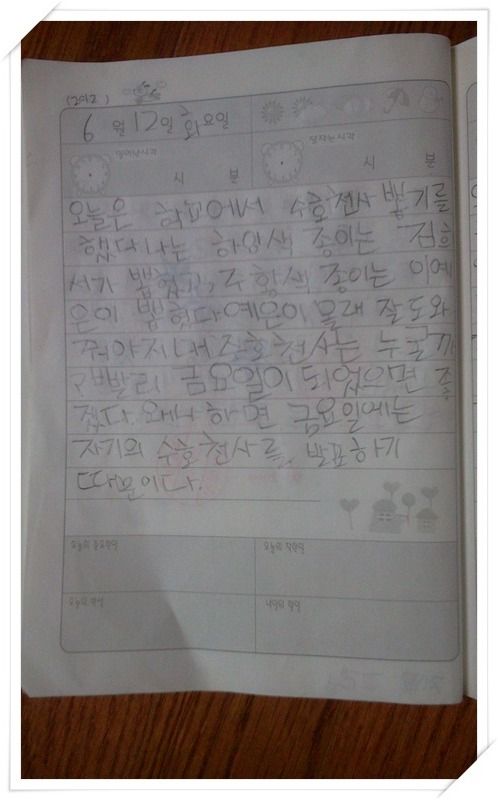 (2012)
6월 12일 화요일
일어난시각 잠자는시각
시 분 시 분
오늘은 학교에서 수호천사 뽑기를
했다 나는 하양색 종이는 김희
서가 뽑혔고, 주황색 종이는 이예
은이 뽑혔다 예은이 몰래 잘 도와
줘야지 내 수호천사는 누굴까
? 빨리 금요일이 되었으면 좋
겠다. 왜냐 하면 금요일에는
자기의 수호천사를 발표하기
때문이다.
오늘의 중요한일 오늘의 착한일
오늘의 반성 내일의 할일